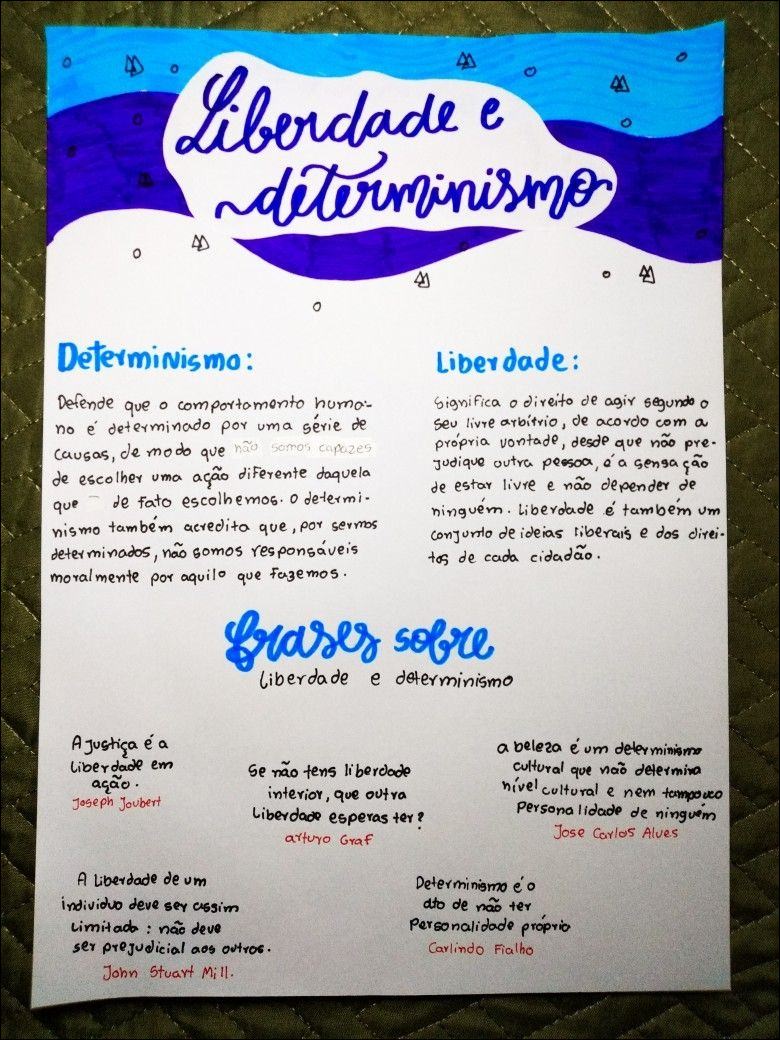 Liberdade e
determinismo
Determinismo:
Defende que o comportamento huma-
no é determinado por uma série de
causas, de modo que não somos capazes
de escolher uma ação diferente daquela
que de fato escolhemos. O determi-
nismo também acredita que, por sermos
determinados, não somos responsáveis
moralmente por aquilo que fazemos.
Liberdade:
Significa o direito de agir segundo o
seu livre arbítrio, de acordo com a
própria vontade, desde que não pre-
judique outra pessoa, é a sensação
de estar livre e não depender de
ninguém. Liberdade é também um
conjunto de ideias liberais e dos direi-
tos de cada cidadão.
frases sobre
liberdade e determinismo
A Justiça é a
Liberdade em
ação.
Joseph Joubert
Se não tens liberdade
interior, que outra
Liberdade esperas ter?
arturo Graf
a beleza é um determinismo
cultural que não determina
nível cultural e nem tampouco
Personalidade de ninguém
Jose Carlos Alves
A Liberdade de um
individuo deve ser assim
Limitada: não deve
ser prejudicial aos outros.
John Stuart Mill.
Determinismo é o
ato de não ter
Personalidade próprio
Carlindo Fialho